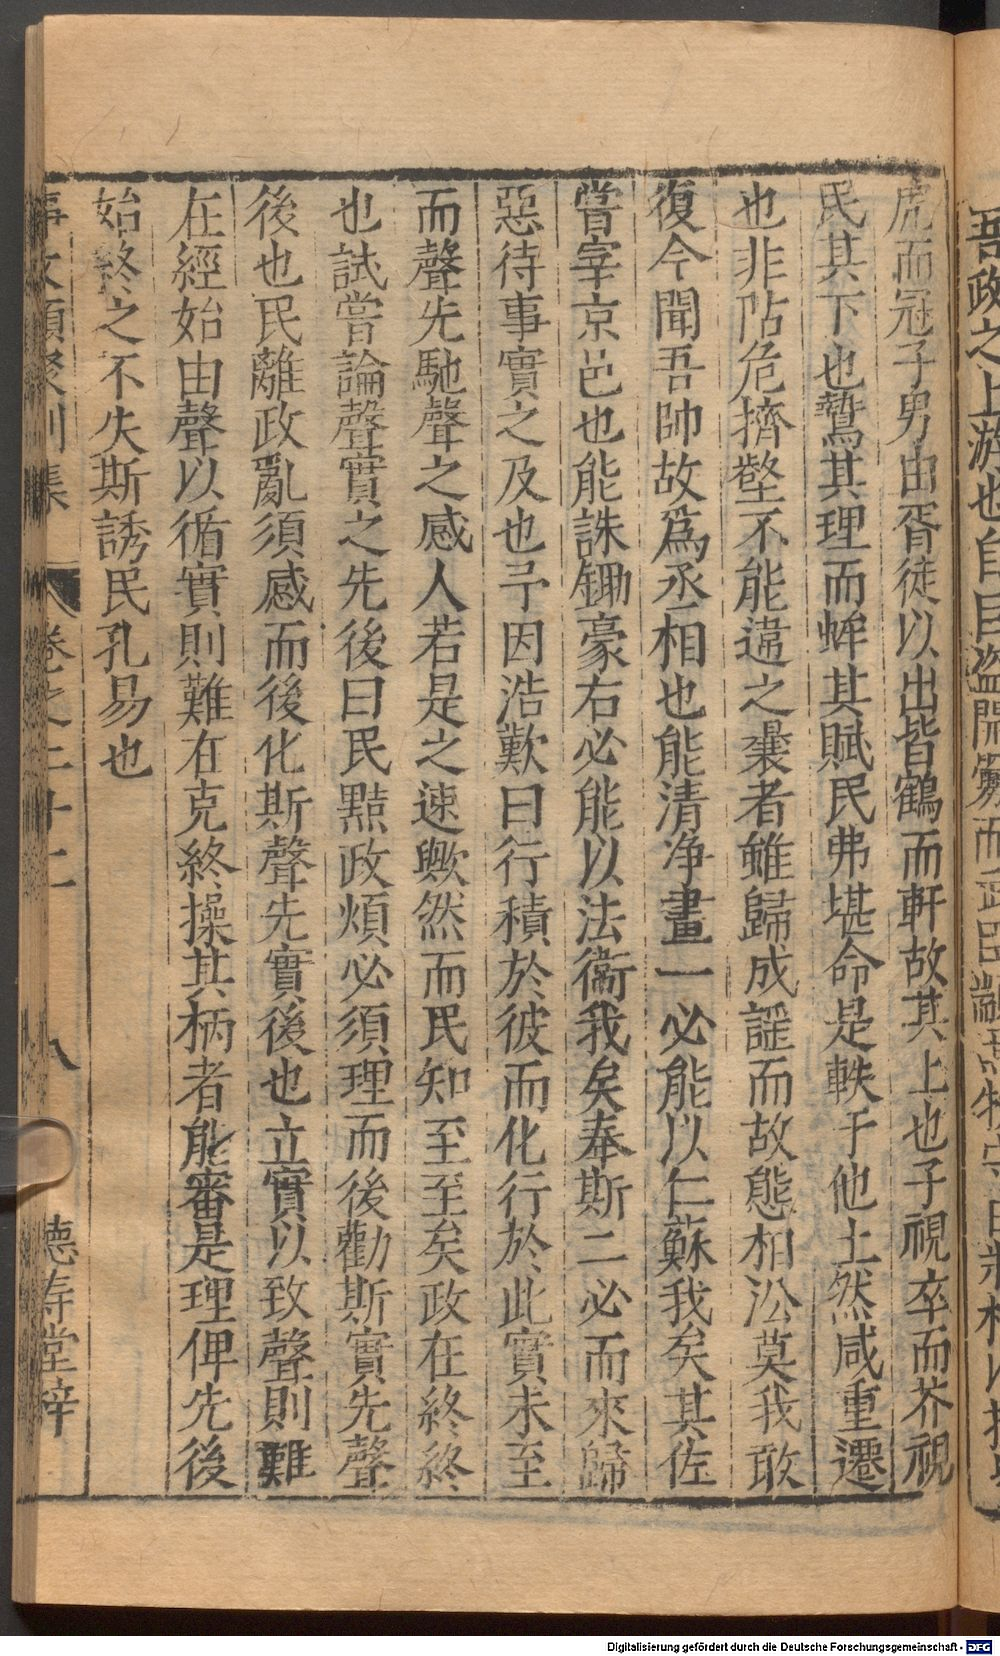 吾政之上游也自
虎而冠子男由胥徒以出皆鶴而軒故其上也子視卒而芥視
民其下也鷙其理而蛑其賦民弗堪命是軼于他土然咸重遷
也非阽危擠壑不能違之曩者雖歸成謡而故態相沿莫我敢
復今聞吾帥故爲丞相也能清净畫一必能以仁蘇我矣其佐
嘗宰京邑也能誅鋤豪右必能以法衞我矣奉斯二必而來歸
惡待事實之及也予因浩歎曰行積於彼而化行於此實未至
而聲先馳聲之感人若是之速歟然而民知至至矣政在終終
也試嘗論聲實之先後曰民黠政煩必須理而後勸斯實先聲
後也民離政亂須感而後化斯聲先實後也立實以致聲則難
在經始由聲以循實則難在克終操其柄者能審是理俾先後
始終之不失斯誘民孔易也
事文類聚別集 卷之二十二 八 德寿堂梓
Digitalisierung gefördert durch die Deutsche Forschungsgemeinschaft - DFG